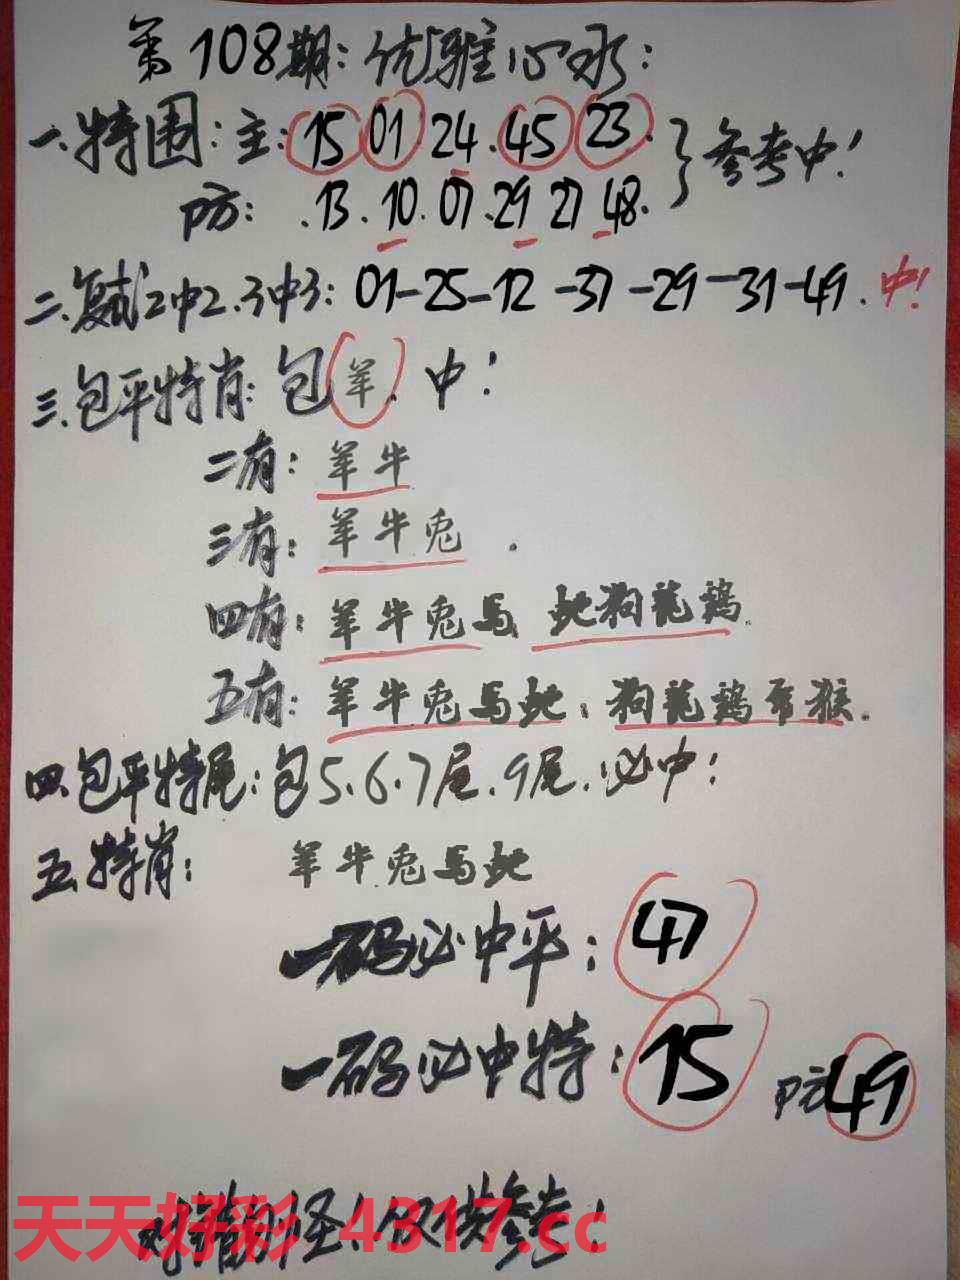 第108期:优雅心水:
一.特围:主:15 01 24.45 23.}参考中!
防:.13.10.07.29 27 48.
二.复试2中2.3中3:01-25-12-37-29-31-49.中!
三.包平特肖:包羊.中!
二有:羊牛
三有:羊牛兔.
四有:羊牛兔马 蛇狗龙鸡.
五有:羊牛兔马蛇:狗龙鸡帝猴.
四.包平特尾:包5.6.7尾.9尾.必中!
五.特肖:羊牛兔马蛇
一码必中平:47
一码必中特:15 防49
对错勿怪!仅供参考!
天天好彩 4317.cc